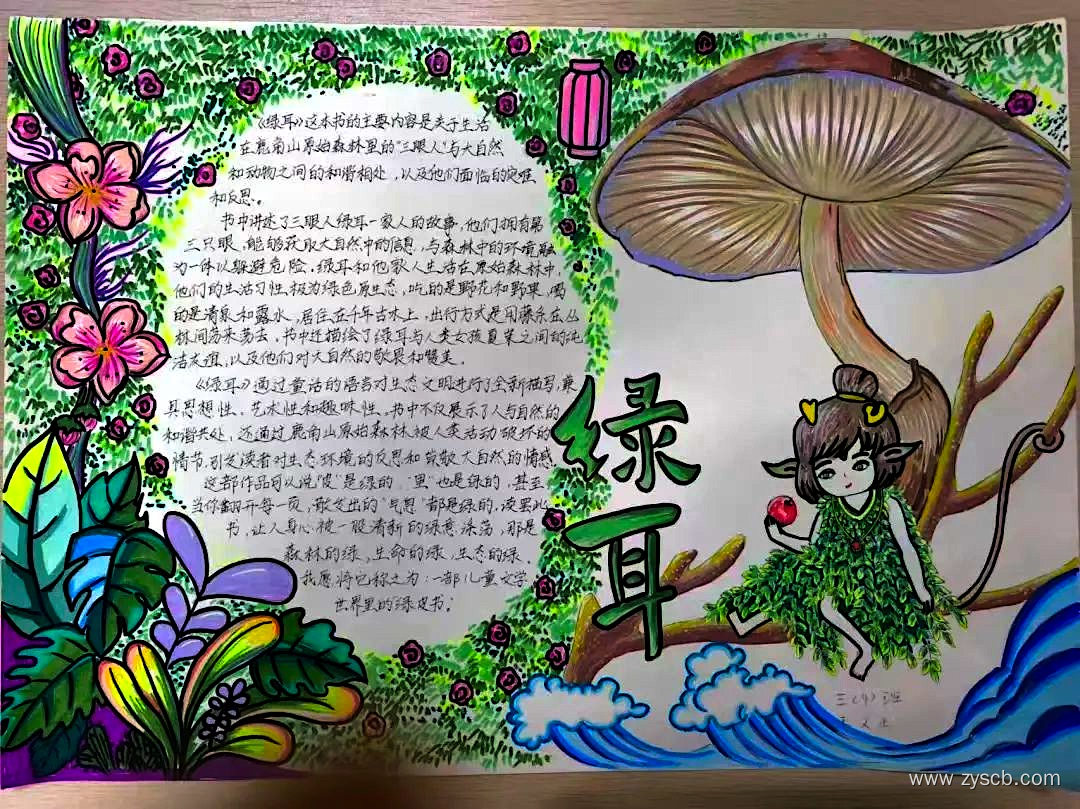 《绿耳》这本书的主要内容是关于生活
在鹿角山原始森林里的"三眼人"与大自然
和动物之间的和谐相处，以及他们面临的灾难
和反思。
书中讲述了三眼人绿耳一家人的故事，他们拥有第
三只眼，能够获取大自然中的信息，与森林中的环境融
为一体以躲避危险，绿耳和他家人生活在原始森林中，
他们的生活习性极为绿色原生态，吃的是野花和野果，喝
的是清泉和露水，居住在千年古木上，出行方式是用藤条在丛
林间荡来荡去，书中还描绘了绿耳与人类女孩夏茉之间的纯
洁友谊，以及他们对大自然的敬畏和赞美。
《绿耳》通过童话的语言对生态文明进行了全新描写，兼
具思想性、艺术性和趣味性，书中不仅展示了人与自然的
和谐共处，还通过鹿角山原始森林被人类活动破坏的
情节，引发读者对生态环境的反思和致敬大自然的情感
这部作品可以说"皮"是绿的，"里"也是绿的，甚至
当你翻开每一页，散发出的"气息"都是绿的，读罢此
书，让人身心被一股清新的绿意涤荡，那是
森林的绿，生命的绿，生态的绿。
我愿将它称之为：一部儿童文学
世界里的"绿皮书"。
绿
耳
三（4）班
www.zyscb.com